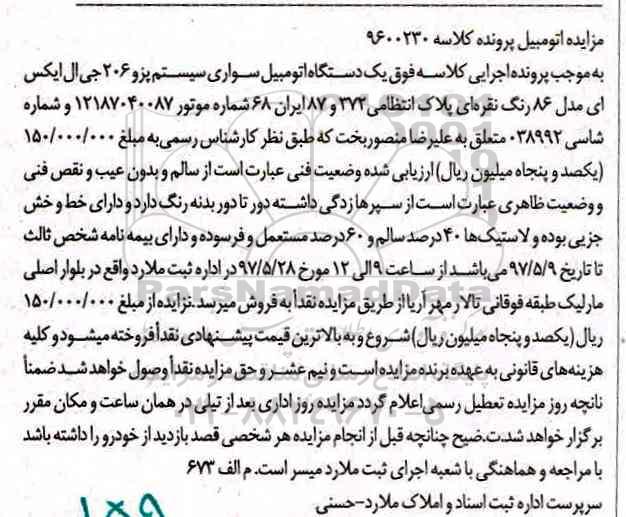 مزایده اتومبیل پرونده کلاسه ۹۶۰۰۲۳۰
به موجب پرونده اجرایی کلاسه فوق یک دستگاه اتومبیل سواری سیستم پژو ۲۰۶ جی ال ایکس
ای مدل ۸۶ رنگ نقره‌ای پلاک انتظامی ۳۷۲ و ۸۷ ایران ۶۸ شماره موتور ۱۲۱۸۷۰۴۰۰۸۷ و شماره
شاسی ۰۳۸۹۹۲ متعلق به علیرضا منصوربخت که طبق نظر کارشناس رسمی به مبلغ ۱۵۰/۰۰۰/۰۰۰
(یکصد و پنجاه میلیون ریال) ارزیابی شده وضعیت فنی عبارت است از سالم و بدون عیب و نقص فنی
و وضعیت ظاهری عبارت است از سپرها زدگی داشته دور تا دور بدنه رنگ دارد و دارای خط و خش
جزیی بوده و لاستیک‌ها ۴۰ درصد سالم و ۶۰ درصد مستعمل و فرسوده و دارای بیمه نامه شخص ثالث
تا تاریخ ۹۷/۵/۹ می‌باشد از ساعت ۹ الی ۱۲ مورخ ۹۷/۵/۲۸ در اداره ثبت ملارد واقع در بلوار اصلی
مارلیک طبقه فوقانی تالار مهر آریا از طریق مزایده نقدأ به فروش میرسد.نزایده از مبلغ ۱۵۰/۰۰۰/۰۰۰
ریال (یکصد و پنجاه میلیون ریال) شروع و به بالاترین قیمت پیشنهادی نقدأ فروخته میشود و کلیه
هزینه‌های قانونی به عهده برنده مزایده است و نیم عشر و حق مزایده نقدأ وصول خواهد شد ضمنأ
نانچه روز مزایده تعطیل رسمی اعلام گردد مزایده روز اداری بعد از تیلی در همان ساعت و مکان مقرر
برگزار خواهد شد.ت.ضیح چنانچه قبل از انجام مزایده هر شخصی قصد بازدید از خودرو را داشته باشد
با مراجعه و هماهنگی با شعبه اجرای ثبت ملارد میسر است. م الف ۶۷۳
سرپرست اداره ثبت اسناد و املاک ملارد-حسنی
۱۵۹
ParsNamadData
۰۲۱-۸۸۳۴۹۶۷۰-۵